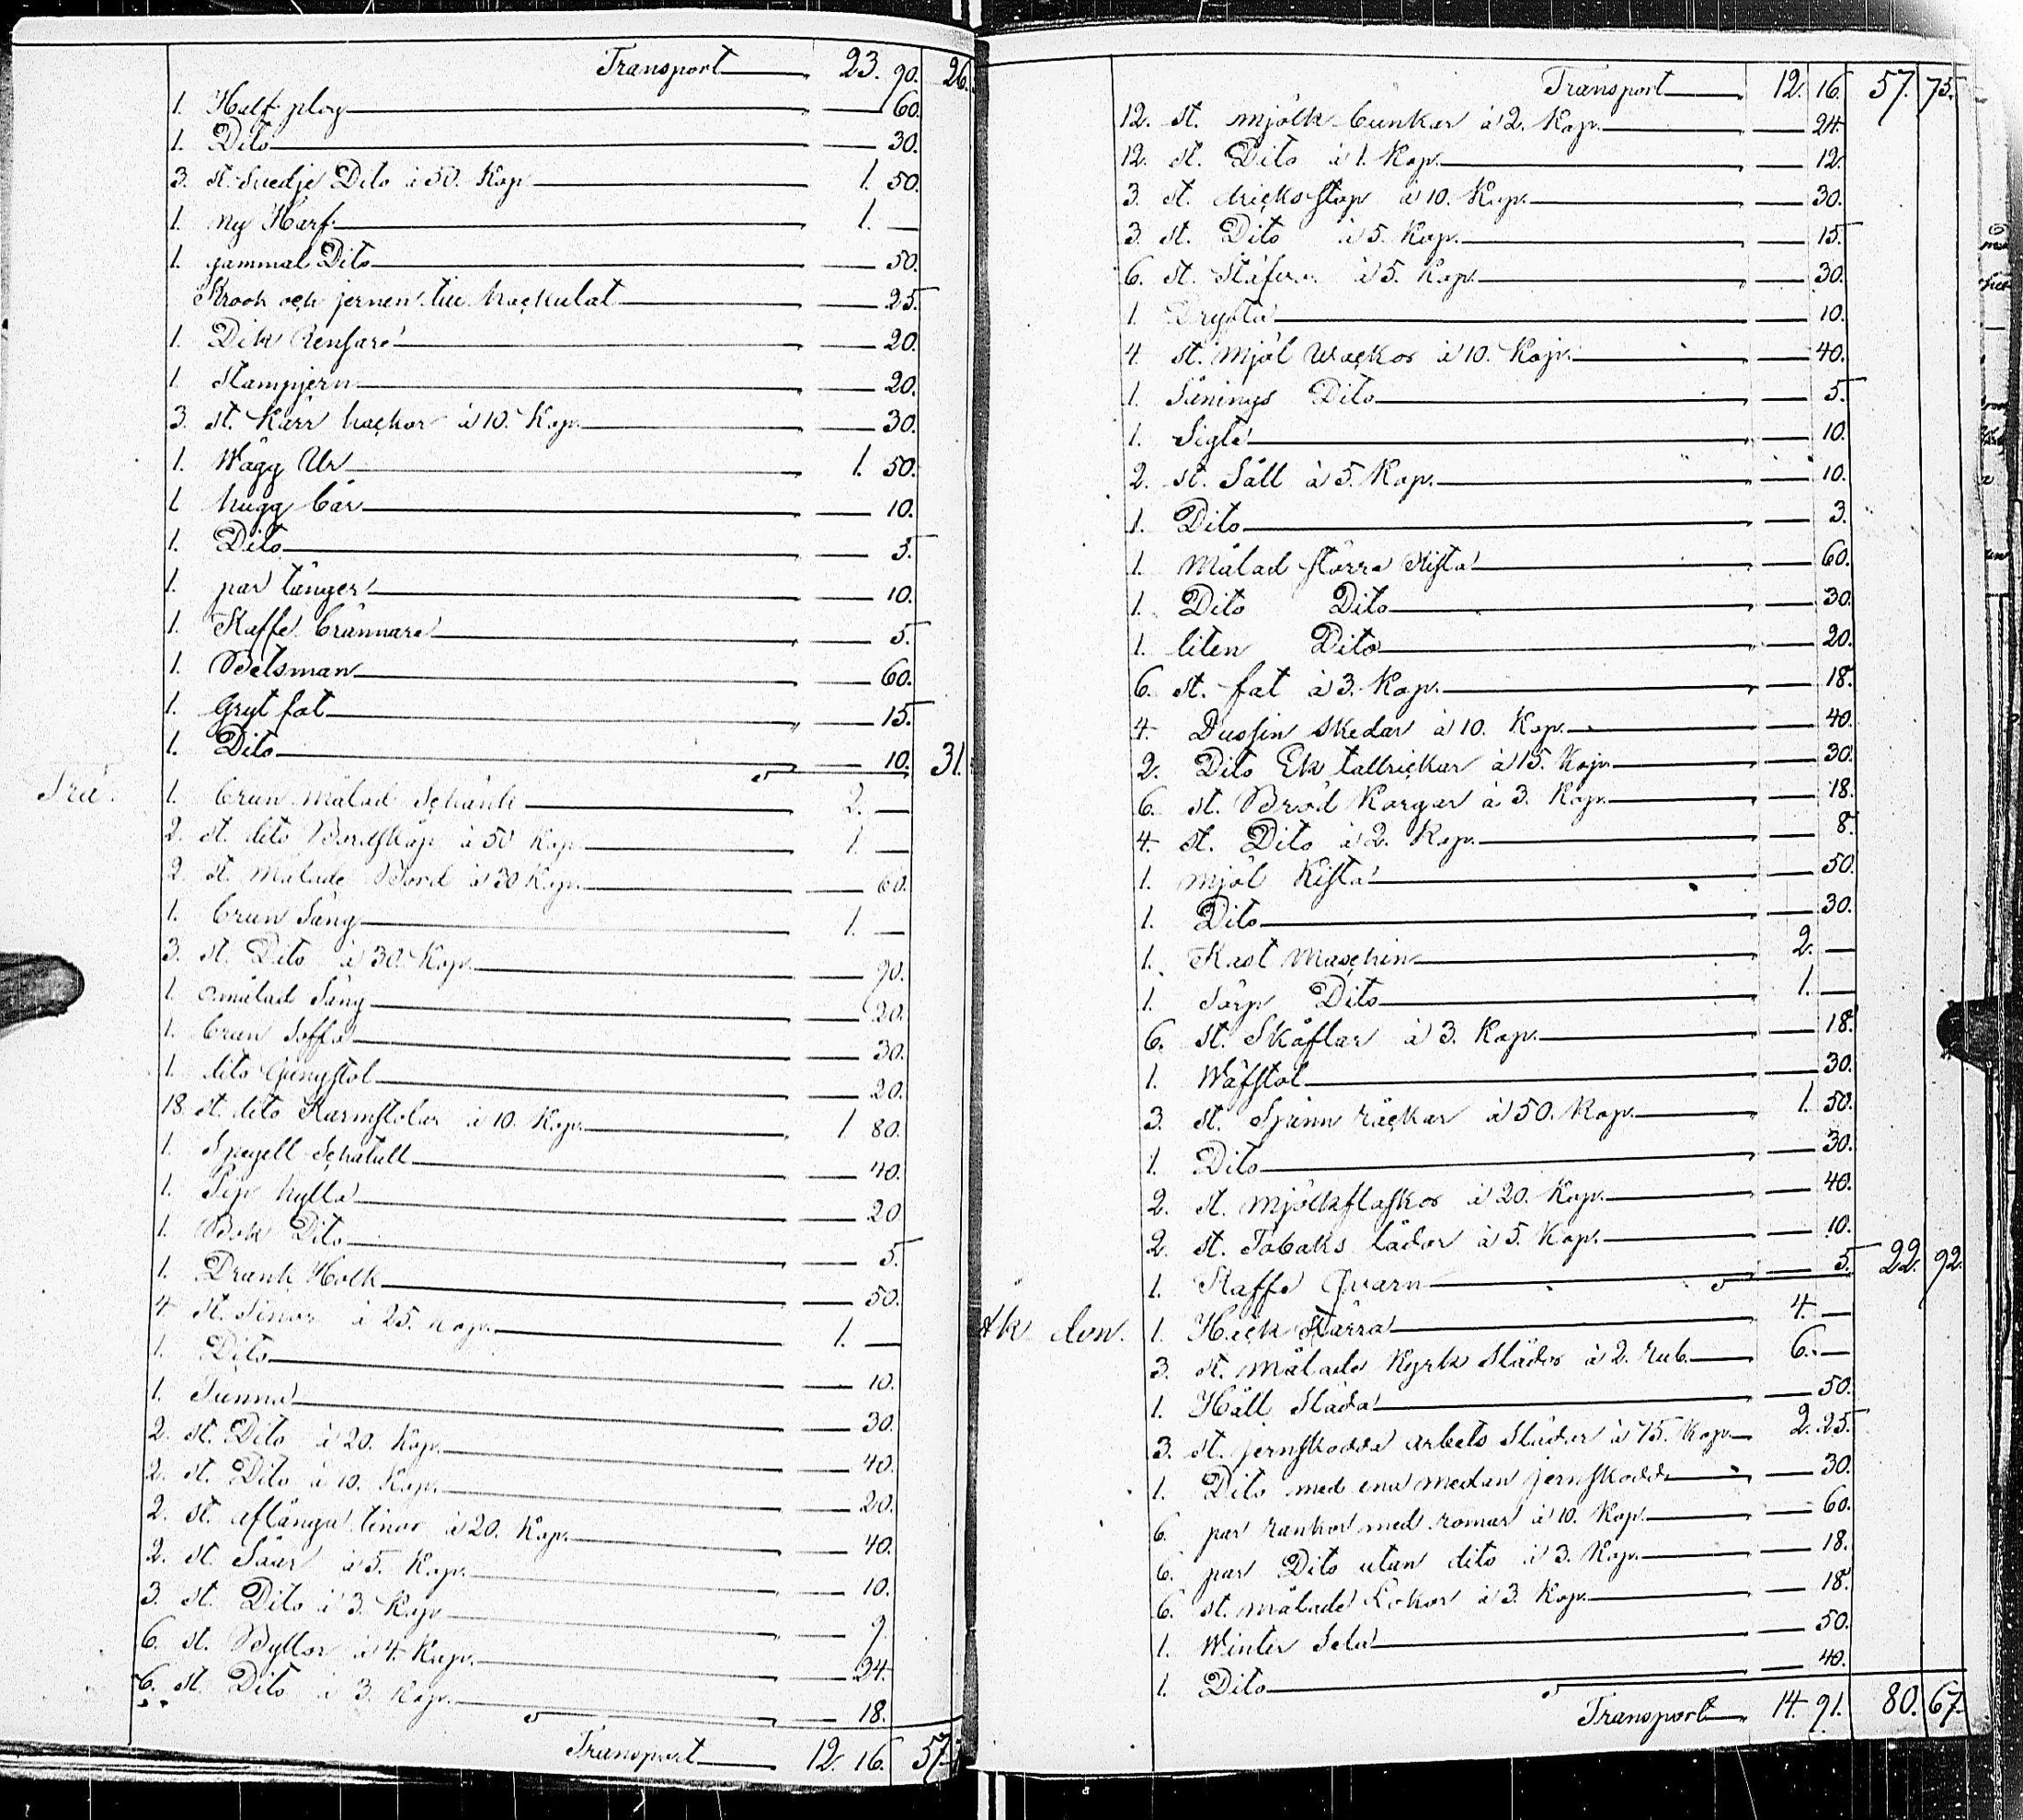 Transport 23. 90. 26.
1. Half plog 60.
1. Dito 30.
3. st. Svedje Dito à 50. Kop 1. 50.
1. ny Harf 1. —
1. gammal Dito 50.
Krook och jernen till hackulat 25.
1. Dik Rensare 20.
1. Stampjern 20.
3. st. Kärr hackor à 10. Kop. 30.
1. Wägg Ur 1. 50.
1. hugg bår 10.
1. Dito 5.
1. par tänger 10.
1. Kaffe brännare 5.
1. Betsman 60.
1. Gryt fat 15.
1. Dito 10. 31.
Trä.
1. brun målad Schänk 2. —
2. st. dito Bordskåp à 50 Kop 1. —
2. st. målade Bord à 30 Kop. 60.
1. brun Säng 1. —
3. st. Dito à 30. Kop. 90.
1. omålad Säng 20.
1. brun Soffa 30.
1. dito Gungstol 20.
18. st. dito Karmstolar à 10. Kop. 1. 80.
1. Spegell Schatull 40.
1. Pip hylla 20
1. Bok Dito 5.
1. Drank Holk 50.
4. st. Tinor à 25. Kop. 1. —
1. Dito 10.
1. Tunna 30.
2. st. Dito à 20. Kop. 40.
2. st. Dito à 10. Kop. 20.
2. st. aflånga tinor à 20. Kop. 40.
2. st. Såar à 5. Kop. 10.
3. st. Dito à 3. Kop 9.
6. st. Byttor à 4. Kop. 24.
6. st. Dito à 3. Kop. 18.
Transport 12. 16. 57.
Transport 12. 16. 57. 75.
12. st. mjölk bunkar à 2. Kop. 24.
12. st. Dito à 1. Kop. 12.
3. st. dricksstop à 10. Kop. 30.
3. st. Dito à 5. Kop. 15.
6. st. Stäfvor à 5. Kop. 30.
1. Drysta 10.
4. st. Mjöl Wackor à 10. Kop. 40.
1. Sånings Dito 5.
1. Sigte 10.
2. st. Såll à 5. Kop. 10.
1. Dito 3.
1. Målad större Kista 60.
1. Dito Dito 30.
1. liten Dito 20.
6. st. fat à 3. Kop. 18.
4. Dussin Skedar à 10. Kop. 40.
2. Dito Ek tallrickar à 15. Kop. 30.
6. st. Bröd Korgar à 3. Kop. 18.
4. st. Dito à 2. Kop. 8.
1. mjöl Kista 50.
1. Dito 30.
1. Kast Maschin 2. —
1. Sorp Dito 1. —
6. st. Skåflar à 3. Kop. 18.
1. Wäfstol 30.
3. st. Spinn räckar à 50. Kop. 1. 50.
1. Dito 30.
2. st. Mjölkflaskor à 20. Kop. 40.
2. st. Tobaks lådor à 5. Kop. 10.
1. Kaffe Qvarn 5. 22. 92.
Åk don.
1. Häck Kärra 4. —
3. st. målade Kyrk Slädor à 2. rub. 6. —
1. Håll Släda 50.
3. st. jernskodda arbets Slädar à 75. Kop. 2. 25.
1. Dito med ena medan jernskodd 30.
6. par rankor med romar à 10. Kop. 60.
6. par Dito utan dito à 3. Kop. 18.
6. st. målade Lokor à 3. Kop. 18.
1. Winter Sela 50.
1. Dito 40.
Transport 14. 91. 80. 67.